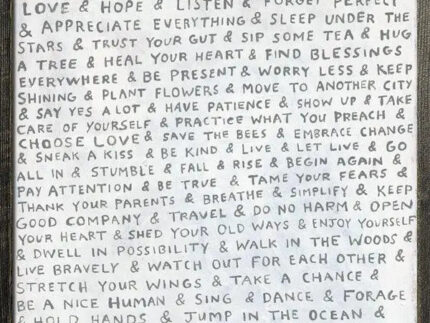 LOVE & HOPE & LISTEN & FORGET PERFECT
& APPRECIATE EVERYTHING & SLEEP UNDER THE
STARS & TRUST YOUR GUT & SIP SOME TEA & HUG
A TREE & HEAL YOUR HEART & FIND BLESSINGS
EVERYWHERE & BE PRESENT & WORRY LESS & KEEP
SHINING & PLANT FLOWERS & MOVE TO ANOTHER CITY
& SAY YES A LOT & HAVE PATIENCE & SHOW UP & TAKE
CARE OF YOURSELF & PRACTICE WHAT YOU PREACH &
CHOOSE LOVE & SAVE THE BEES & EMBRACE CHANGE
& SNEAK A KISS & BE KIND & LIVE & LET LIVE & GO
ALL IN & STUMBLE & FALL & RISE & BEGIN AGAIN &
PAY ATTENTION & BE TRUE & TAME YOUR FEARS &
THANK YOUR PARENTS & BREATHE & SIMPLIFY & KEEP
GOOD COMPANY & TRAVEL & DO NO HARM & OPEN
YOUR HEART & SHED YOUR OLD WAYS & ENJOY YOURSELF
& DWELL IN POSSIBILITY & WALK IN THE WOODS &
LIVE BRAVELY & WATCH OUT FOR EACH OTHER &
STRETCH YOUR WINGS & TAKE A CHANCE &
BE A NICE HUMAN & SING & DANCE & FORAGE
& HOLD HANDS & JUMP IN THE OCEAN &